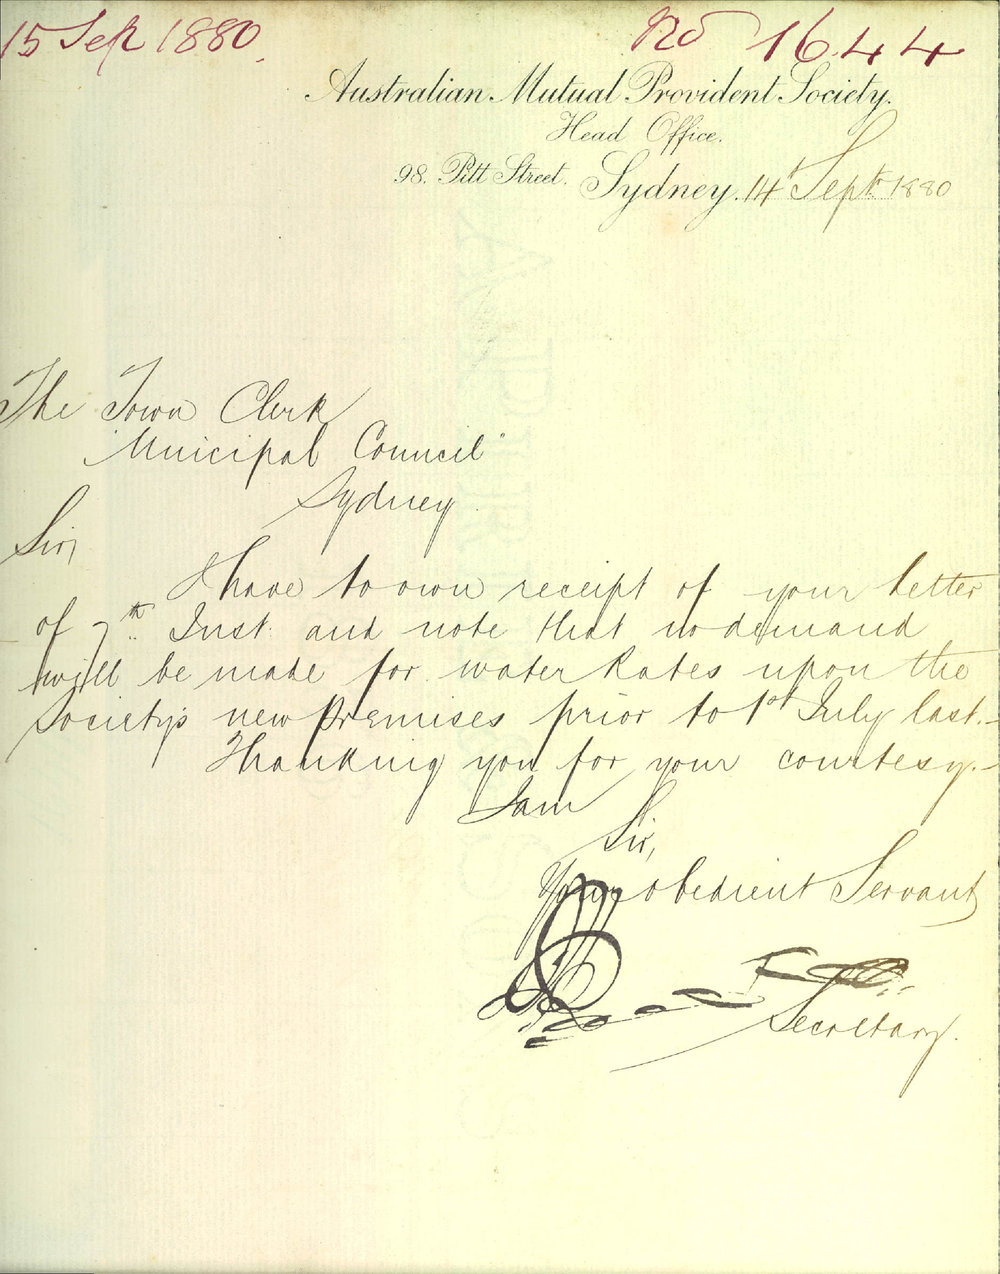 15 Sep 1880
No 1644
Australian Mutual Provident Society.
Head Office.
98. Pitt Street. Sydney. 14th Sept. 1880
The Town Clerk
Municipal Council
Sydney
Sir,
I have to own receipt of your letter
of 7th Inst. and note that no demand
will be made for water Rates upon the
Society's new Premises prior to 1st July last.-
Thanking you for your courtesy.-
I am
Sir,
Your obedient Servant
Secretary.